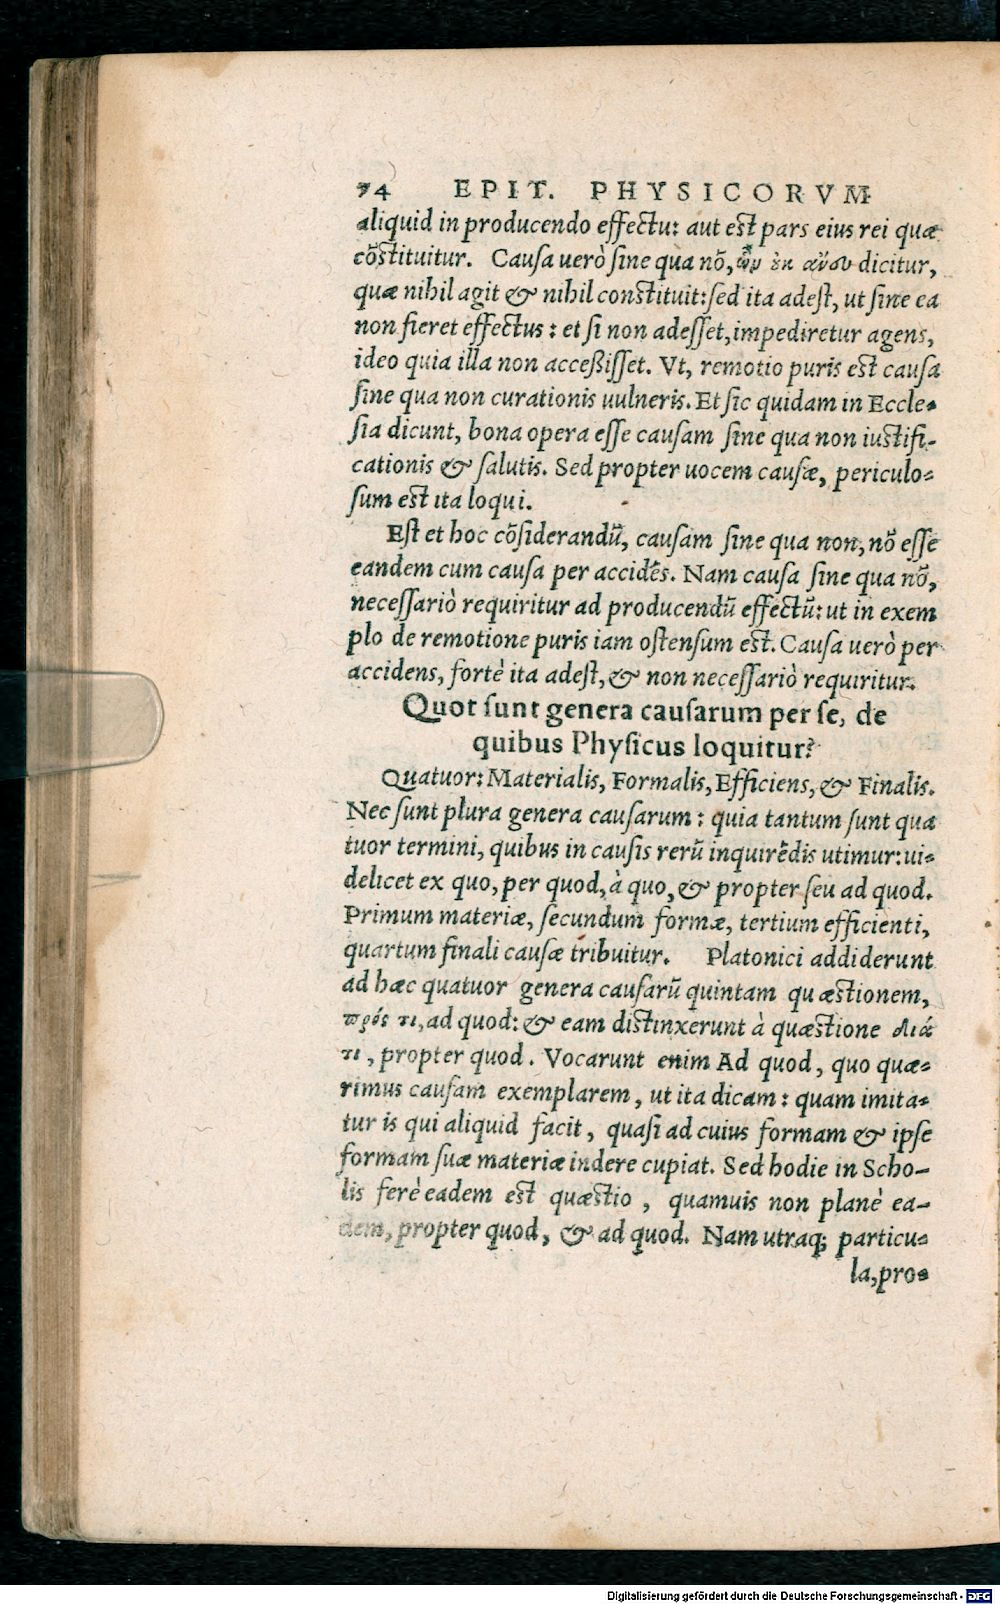 74 EPIT. PHYSICORVM
aliquid in producendo effectu: aut est pars eius rei quæ
cõstituitur. Cauſa uerò ſine qua nõ, ὧν οὐκ ἄνευ dicitur,
quæ nihil agit & nihil constituit: ſed ita adeſt, ut ſine ea
non fieret effectus: et ſi non adeſſet, impediretur agens,
ideo quia illa non acceßiſſet. Vt, remotio puris est cauſa
ſine qua non curationis uulneris. Et ſic quidam in Eccle-
ſia dicunt, bona opera eſſe cauſam ſine qua non iustifi-
cationis & ſalutis. Sed propter uocem cauſæ, periculo-
ſum est ita loqui.
Eſt et hoc cõſiderandũ, cauſam ſine qua non, nõ eſſe
eandem cum cauſa per accidẽs. Nam cauſa ſine qua nõ,
neceſſariò requiritur ad producendũ effectũ: ut in exem
plo de remotione puris iam oſtenſum est. Cauſa uerò per
accidens, fortè ita adeſt, & non neceſſariò requiritur.
Quot ſunt genera cauſarum per ſe, de
quibus Phyſicus loquitur?
Quatuor: Materialis, Formalis, Efficiens, & Finalis.
Nec ſunt plura genera cauſarum: quia tantum ſunt qua
tuor termini, quibus in cauſis rerũ inquirẽdis utimur: ui-
delicet ex quo, per quod, à quo, & propter ſeu ad quod.
Primum materiæ, ſecundum formæ, tertium efficienti,
quartum finali cauſæ tribuitur. Platonici addiderunt
ad hæc quatuor genera cauſarũ quintam quæstionem,
πρός τι, ad quod: & eam distinxerunt à quæstione διά
τι, propter quod. Vocarunt enim Ad quod, quo quæ-
rimus cauſam exemplarem, ut ita dicam: quam imita-
tur is qui aliquid facit, quaſi ad cuius formam & ipſe
formam ſuæ materiæ indere cupiat. Sed hodie in Scho-
lis ferè eadem est quæstio, quamuis non planè ea-
dem, propter quod, & ad quod. Nam utraq; particu-
la, pro-
Digitalisierung gefördert durch die Deutsche Forschungsgemeinschaft - DFG